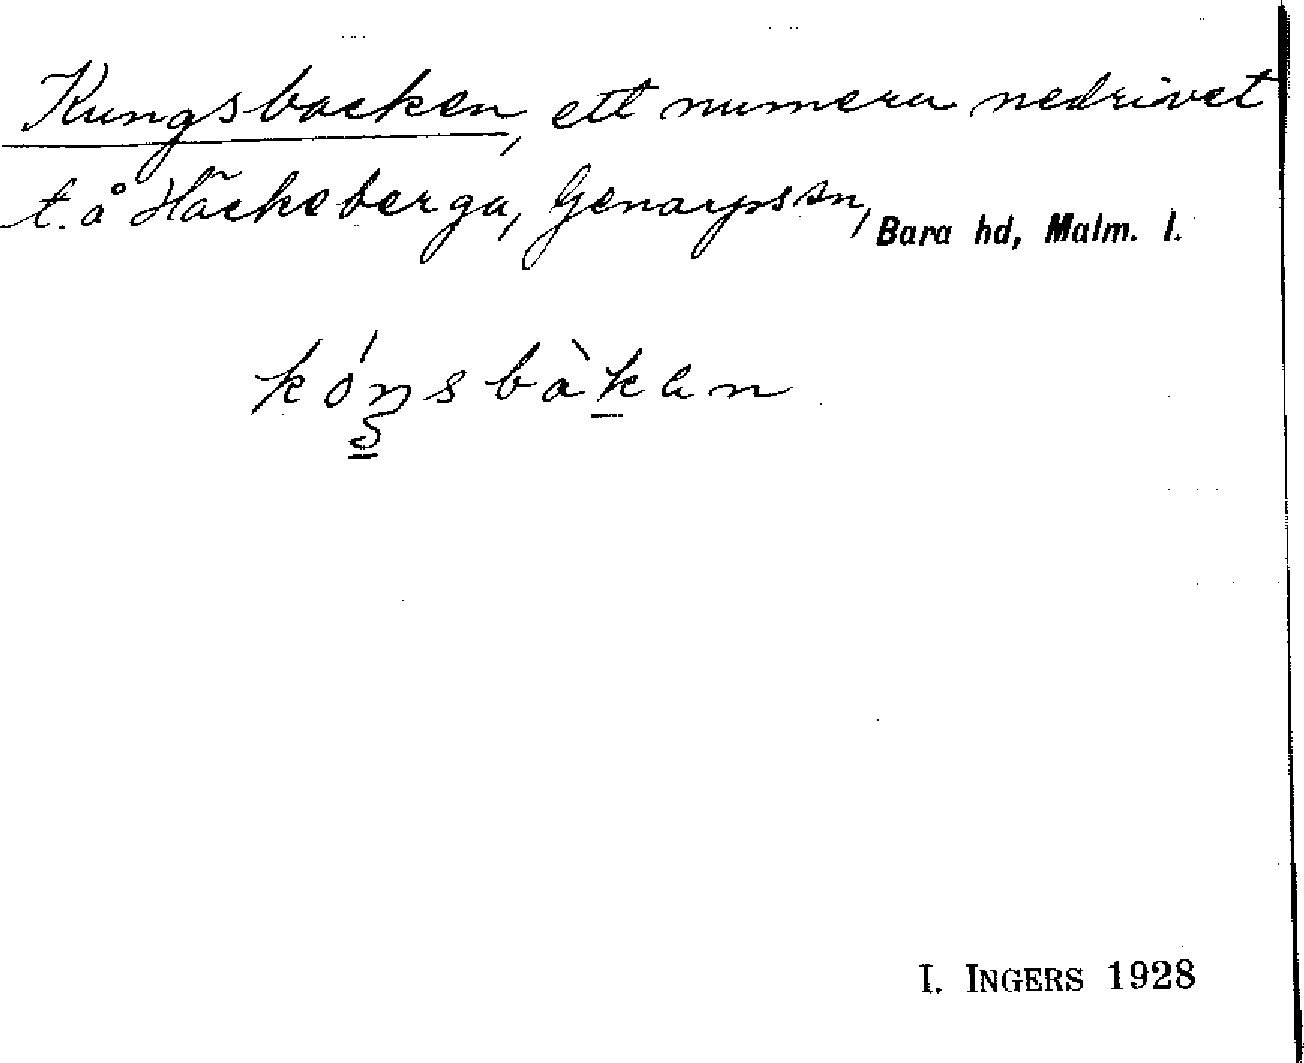 Kungsbacken, ett numera nedrivet
t. å Häckeberga, Genarps sn, Bara hd, Malm. l.
kóŋsbàkan
I. INGERS 1928